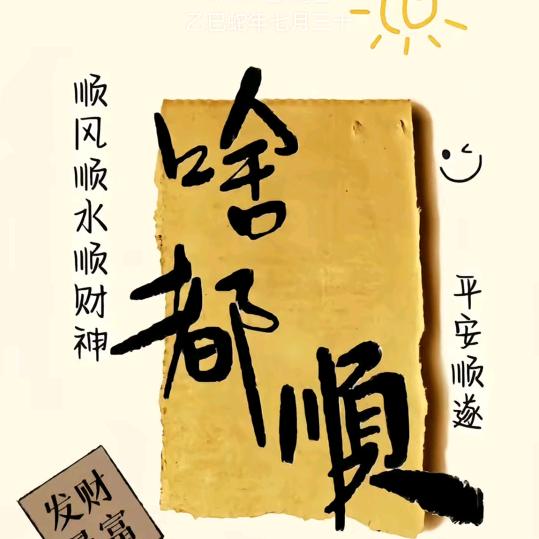 乙巳蛇年七月三十
顺风顺水顺财神
啥
都
順
平安顺遂
发财
富